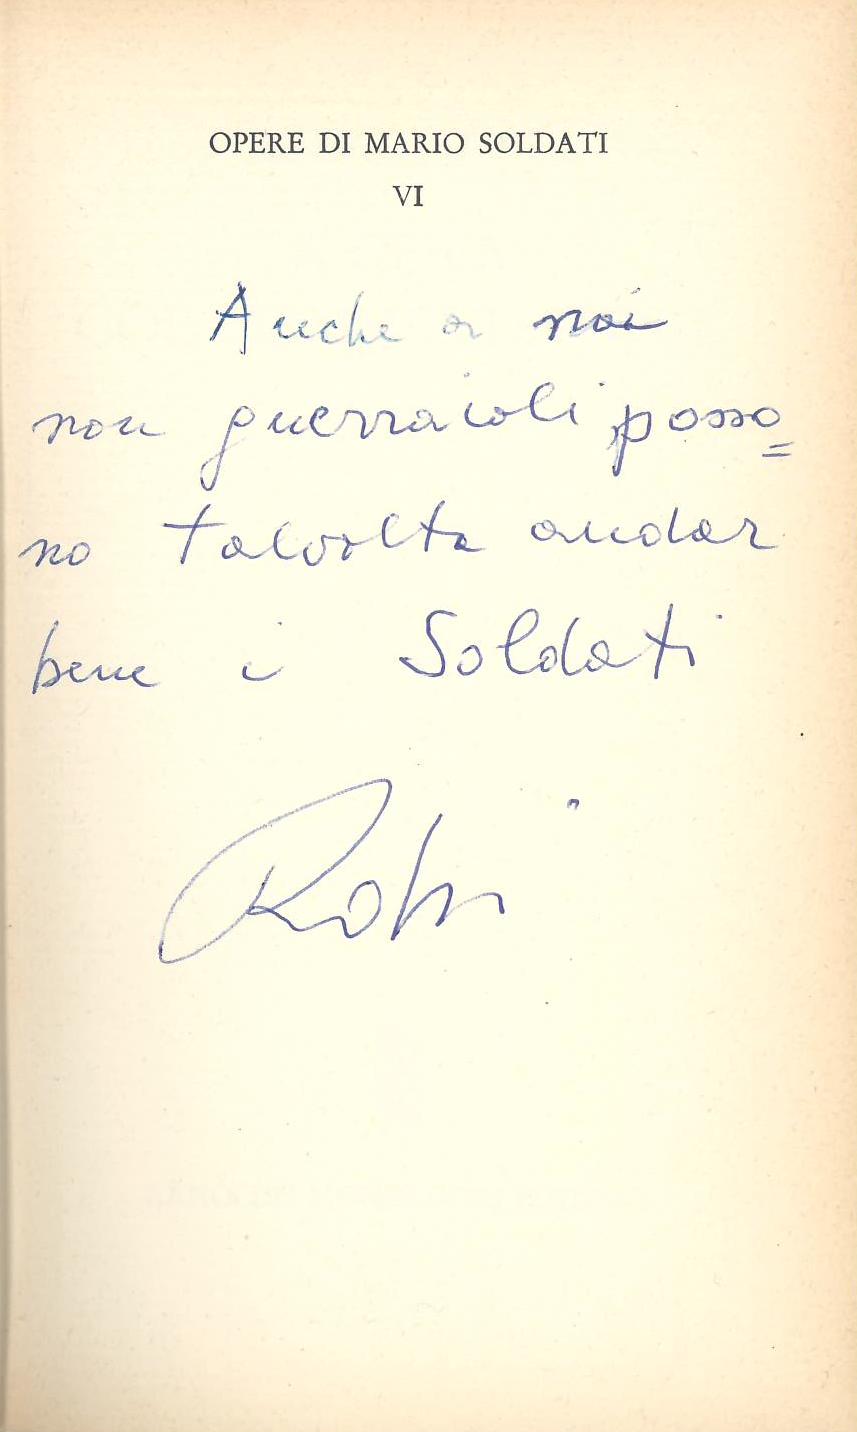 OPERE DI MARIO SOLDATI
VI
Anche a noi
non guerraioli posso=
no talvolta andar
bene i Soldati
Robi